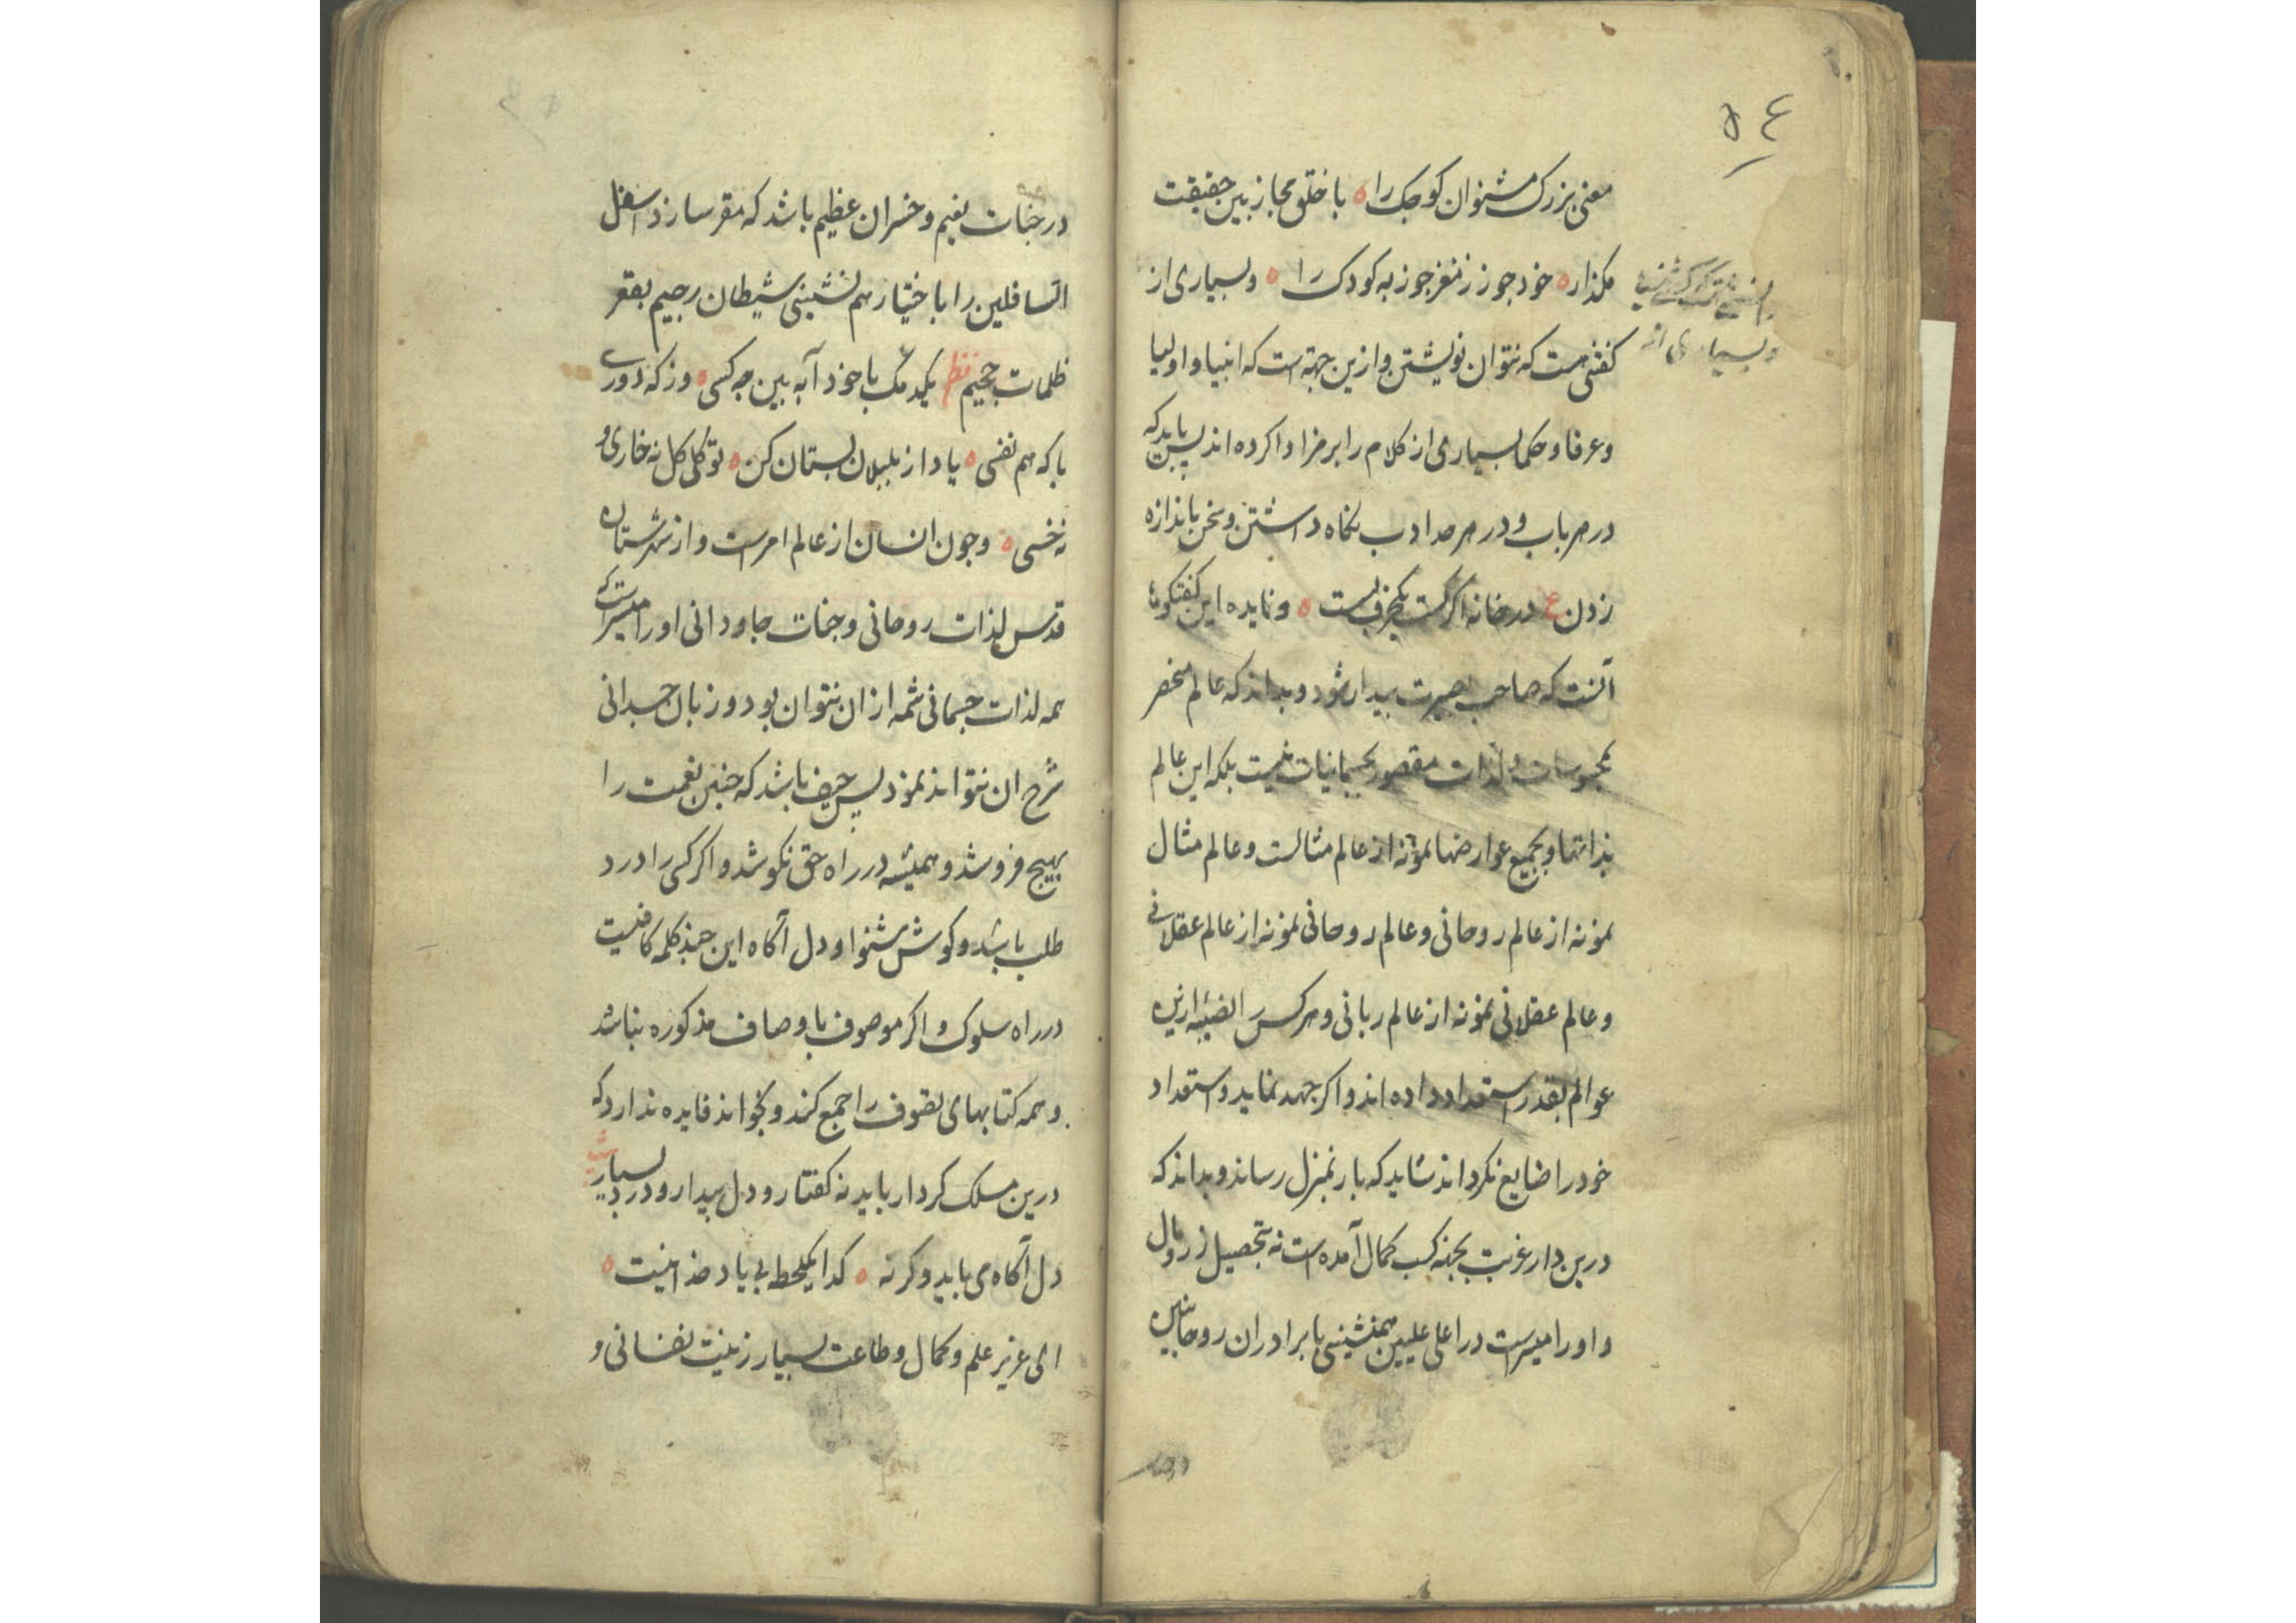 ۵۴
معنی بزرک مشنوان کوجک را ه با خلق مجاز بین حقیقت
مکذار ه خود جوز ز مغز جوز به کودک را ه و بسیاری از
و بسیاری از
کفتنی هست که نتوان نوشتن و ازین جهة است که انبیا و اولیا
و عرفا و حکما بسیاری از کلام را برمز ادا کرده اند پس باید که
در هر باب و در هر صد ادب نکاه داشتن و سخن باندازه
زدن ع در خانه اکر کست یکحرف بست ه و فایده این کفتکوها
آنست که صاحب بصیرت بیدار شود و بداند که عالم منحصر
بمحسوسات و لذات مقصور بجسمانیات نیست بلکه این عالم
بذاتها و بجمیع عوارضها نمونه از عالم مثالست و عالم مثال
نمونه از عالم روحانی و عالم روحانی نمونه از عالم عقلانی
و عالم عقلانی نمونه از عالم ربانی و هرکس را نصیبه ازین
عوالم بقدر استعداد داده اند و اکر جهد نماید و استعداد
خود را ضایع نکرداند شاید که بار بمنزل رساند و بداند که
درین دار غربت بجهة کسب کمال آمده است نه بتحصیل زر و مال
و او را میسر است در اعلی علیین همنشینی با برادران روحانیین
در جنات نعیم و خسران عظیم باشد که مقر سازد اسفل
السافلین را باختیار هم نشینی شیطان رجیم بقعر
ظلمات جحیم نظم یکدمک با خود آ به بین جه کسی ه و ز که دوری
با که هم نفسی ه یاد از بلبلان بستان کن ه تو کلی کل نه خاری و
نه خسی ه و جون انسان از عالم امرست و از شهرستان
قدس لذات روحانی و جنات جاودانی او را میسر است که
همه لذات جسمانی شمه از ان نتوان بود و زبان جسدانی
شرح ان نتواند نمود پس حیف باشد که جنین نعمت را
بهیج فروشد و همیشه در راه حق نکوشد و اکر کسی را درد
طلب باشد و کوش شنوا و دل آکاه این جند کلمه کافیست
در راه سلوک و اکر موصوف باوصاف مذکوره نباشد
و همه کتابهای تصوف را جمع کند و بخواند فایده ندارد که
درین مسلک کردار باید نه کفتار و دل بیدار و درد بسیار
دل آکاه می باید و کرنه ه کدا یکلحظه بی یاد خدا نیست ه
ای عزیز علم و کمال و طاعت بسیار زینت نفسانی و